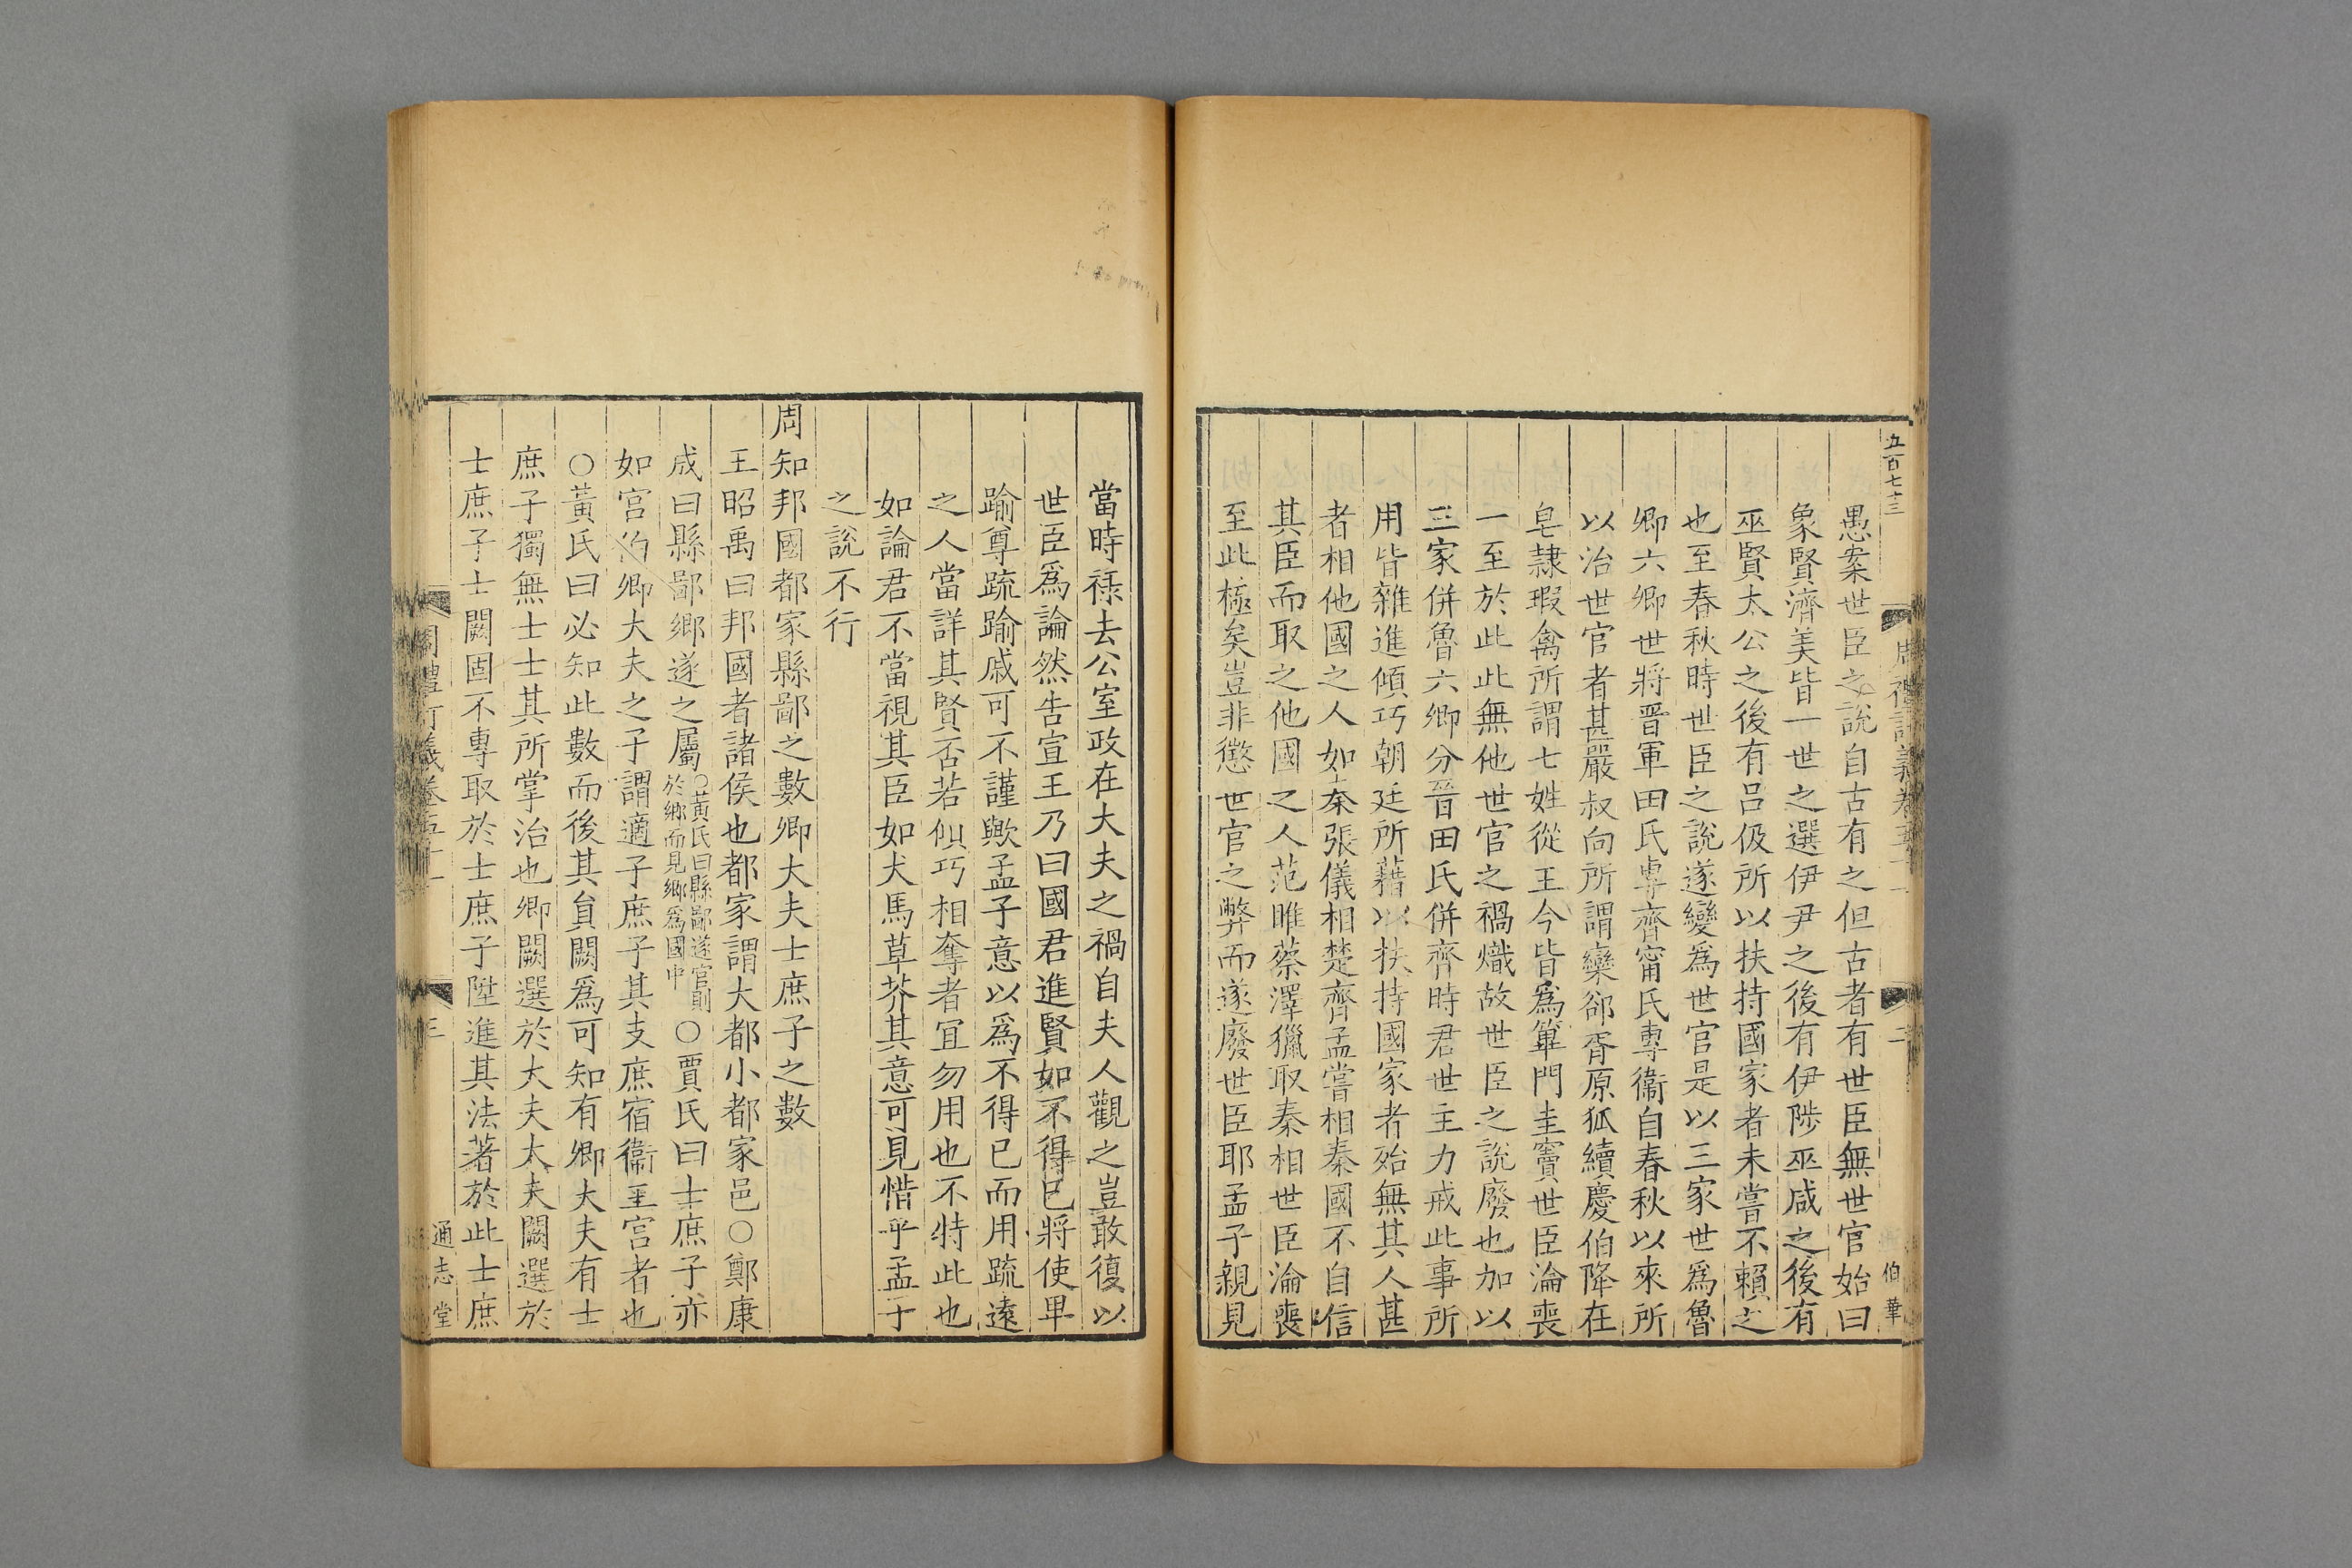 五百七十三
伯華
愚案世臣之說自古有之但古者有世臣無世官始曰
象賢濟美皆一世之選伊尹之後有伊陟巫咸之後有
巫賢太公之後有呂伋所以扶持國家者未嘗不賴之
也至春秋時世臣之說遂變爲世官是以三家世爲魯
卿六卿世將晋軍田氏專齊甯氏專衞自春秋以來所
以治世官者甚嚴叔向所謂欒郤胥原狐續慶伯降在
皂隷瑕禽所謂七姓從王今皆爲篳門圭竇世臣淪喪
一至於此此無他世官之禍熾故世臣之說廢也加以
三家併魯六卿分晉田氏併齊時君世主力戒此事所
用皆雜進傾巧朝廷所藉以扶持國家者殆無其人甚
者相他國之人如秦張儀相楚齊孟嘗相秦國不自信
其臣而取之他國之人范雎蔡澤獵取秦相世臣淪喪
至此極矣豈非懲世官之弊而遂廢世臣耶孟子親見
當時祿去公室政在大夫之禍自夫人觀之豈敢復以
世臣爲論然告宣王乃曰國君進賢如不得已將使卑
踰尊疏踰戚可不謹歟孟子意以爲不得已而用疏遠
之人當詳其賢否若似巧相奪者宜勿用也不特此也
如論君不當視其臣如犬馬草芥其意可見惜乎孟子
之說不行
周知邦國都家縣鄙之數卿大夫士庶子之數
王昭禹曰邦國者諸侯也都家謂大都小都家邑○鄭康
成曰縣鄙鄉遂之屬○黃氏曰縣鄙遂官則於鄉而見鄉爲國中○賈氏曰士庶子亦
如宮伯卿大夫之子謂適子庶子其支庶宿衞王宮者也
○黃氏曰必知此數而後其員闕爲可知有卿大夫有士
庶子獨無士士其所掌治也卿闕選於大夫大夫闕選於
士庶子士闕固不專取於士庶子陞進其法著於此士庶
周禮訂義卷五十一
三
通志堂